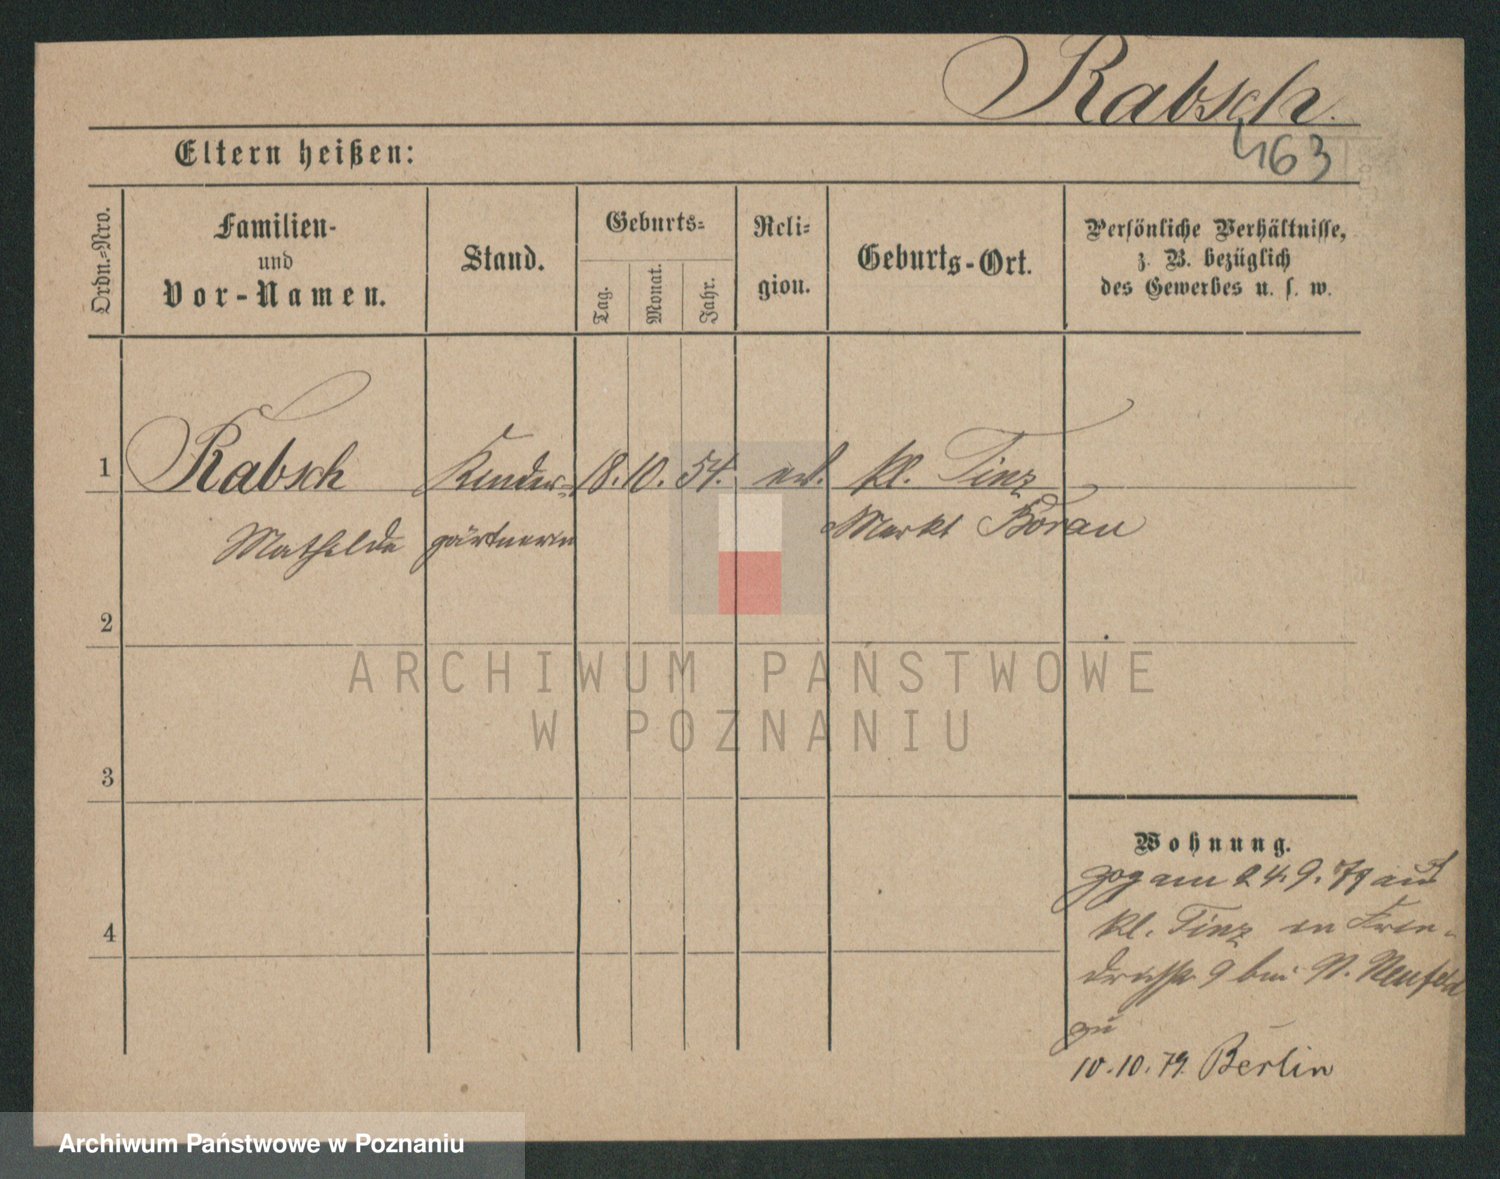 Rabsch.
463
Eltern heißen:
Ordn.-Nro.
Familien-
und
Vor-Namen.
Stand.
Geburts-
Tag.
Monat.
Jahr.
Reli-
gion.
Geburts-Ort.
Persönliche Verhältnisse,
z. B. bezüglich
des Gewerbes u. s. w.
1 Rabsch Kinder- 18. 10. 54. kl. Tinz
Mathilde gärtnerin Markt Borau
2
3
4
Wohnung.
zog am 24.9.79 aus
kl. Tinz in Frie-
drichstr 9 bei N. Neufeld
zu
10.10.79. Berlin
ARCHIWUM PAŃSTWOWE
W POZNANIU
Archiwum Państwowe w Poznaniu